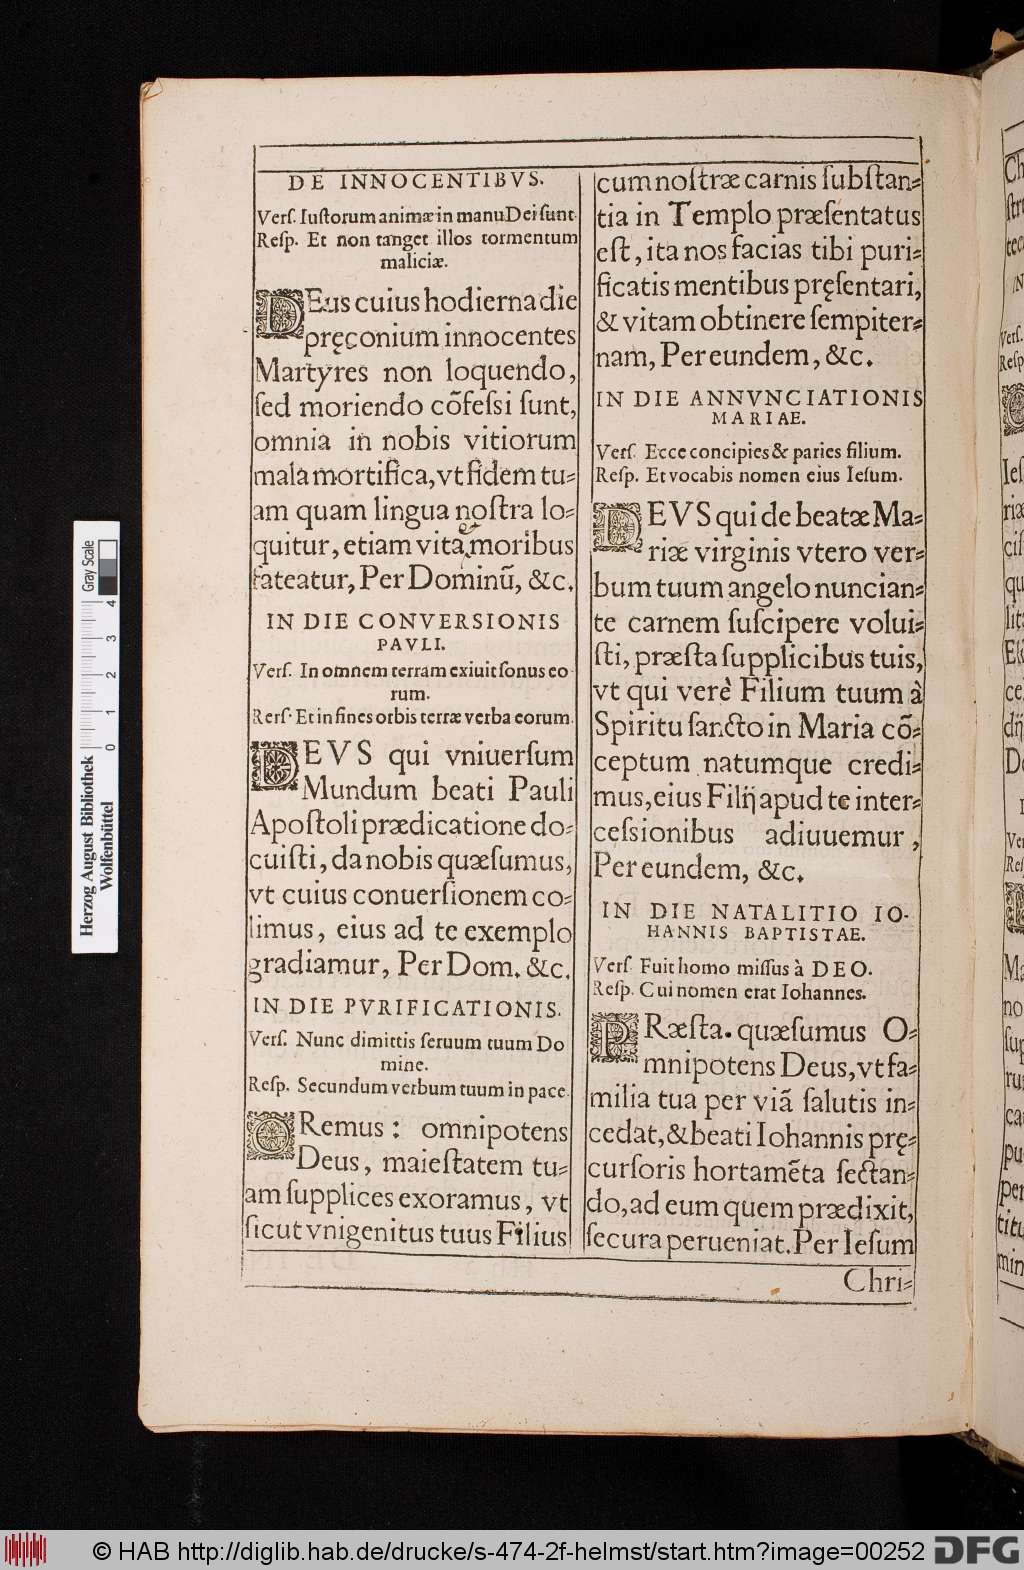 DE INNOCENTIBVS.
Verſ. Iuſtorum animæ in manu Dei ſunt.
Reſp. Et non tanget illos tormentum
maliciæ.
DEus cuius hodierna die
pręconium innocentes
Martyres non loquendo,
ſed moriendo cōfeſsi ſunt,
omnia in nobis vitiorum
mala mortifica, vt fidem tu⸗
am quam lingua noſtra lo⸗
quitur, etiam vita moribus
et
fateatur, Per Dominū, &c.
IN DIE CONVERSIONIS
PAVLI.
Verſ. In omnem terram exiuit ſonus eo
rum.
Rerſ. Et in fines orbis terræ verba eorum.
DEVS qui vniuerſum
Mundum beati Pauli
Apoſtoli prædicatione do⸗
cuiſti, da nobis quæſumus,
vt cuius conuerſionem co⸗
limus, eius ad te exemplo
gradiamur, Per Dom. &c.
IN DIE PVRIFICATIONIS.
Verſ. Nunc dimittis ſeruum tuum Do
mine.
Reſp. Secundum verbum tuum in pace.
ORemus: omnipotens
Deus, maieſtatem tu⸗
am ſupplices exoramus, vt
ſicut vnigenitus tuus Filius
cum noſtræ carnis ſubſtan⸗
tia in Templo præſentatus
eſt, ita nos facias tibi puri⸗
ficatis mentibus pręſentari,
& vitam obtinere ſempiter⸗
nam, Per eundem, &c.
IN DIE ANNVNCIATIONIS
MARIAE.
Verſ. Ecce concipies & paries filium.
Reſp. Et vocabis nomen eius Ieſum.
DEVS qui de beatæ Ma⸗
riæ virginis vtero ver⸗
bum tuum angelo nuncian⸗
te carnem ſuſcipere volui⸗
ſti, præſta ſupplicibus tuis,
vt qui verè Filium tuum à
Spiritu ſancto in Maria cō⸗
ceptum natumque credi⸗
mus, eius Filij apud te inter⸗
ceſsionibus adiuuemur,
Per eundem, &c.
IN DIE NATALITIO IO-
HANNIS BAPTISTAE.
Verſ. Fuit homo miſſus à DEO.
Reſp. Cui nomen erat Iohannes.
PRæſta. quæſumus O⸗
mnipotens Deus, vt fa⸗
milia tua per viā ſalutis in⸗
cedat, & beati Iohannis prę⸗
curſoris hortamēta ſectan⸗
do, ad eum quem prædixit,
ſecura perueniat. Per Ieſum
Chri⸗
Herzog August Bibliothek
Wolfenbüttel
Gray Scale
0 1 2 3 4
© HAB http://diglib.hab.de/drucke/s-474-2f-helmst/start.htm?image=00252
DFG